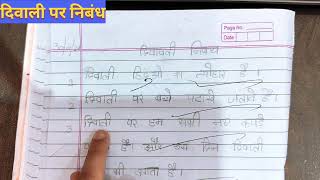 दिवाली पर निबंध
Page no.
Date
दिपावली निबंध
1 दिवाली हिंदुओ का त्योहार है।
2 दिवाली पर बच्चे पटाखे जलाते है।
3 दिवाली पर हम सभी नये कपड़े
है। और इस दिन दिवाली
भी
है।